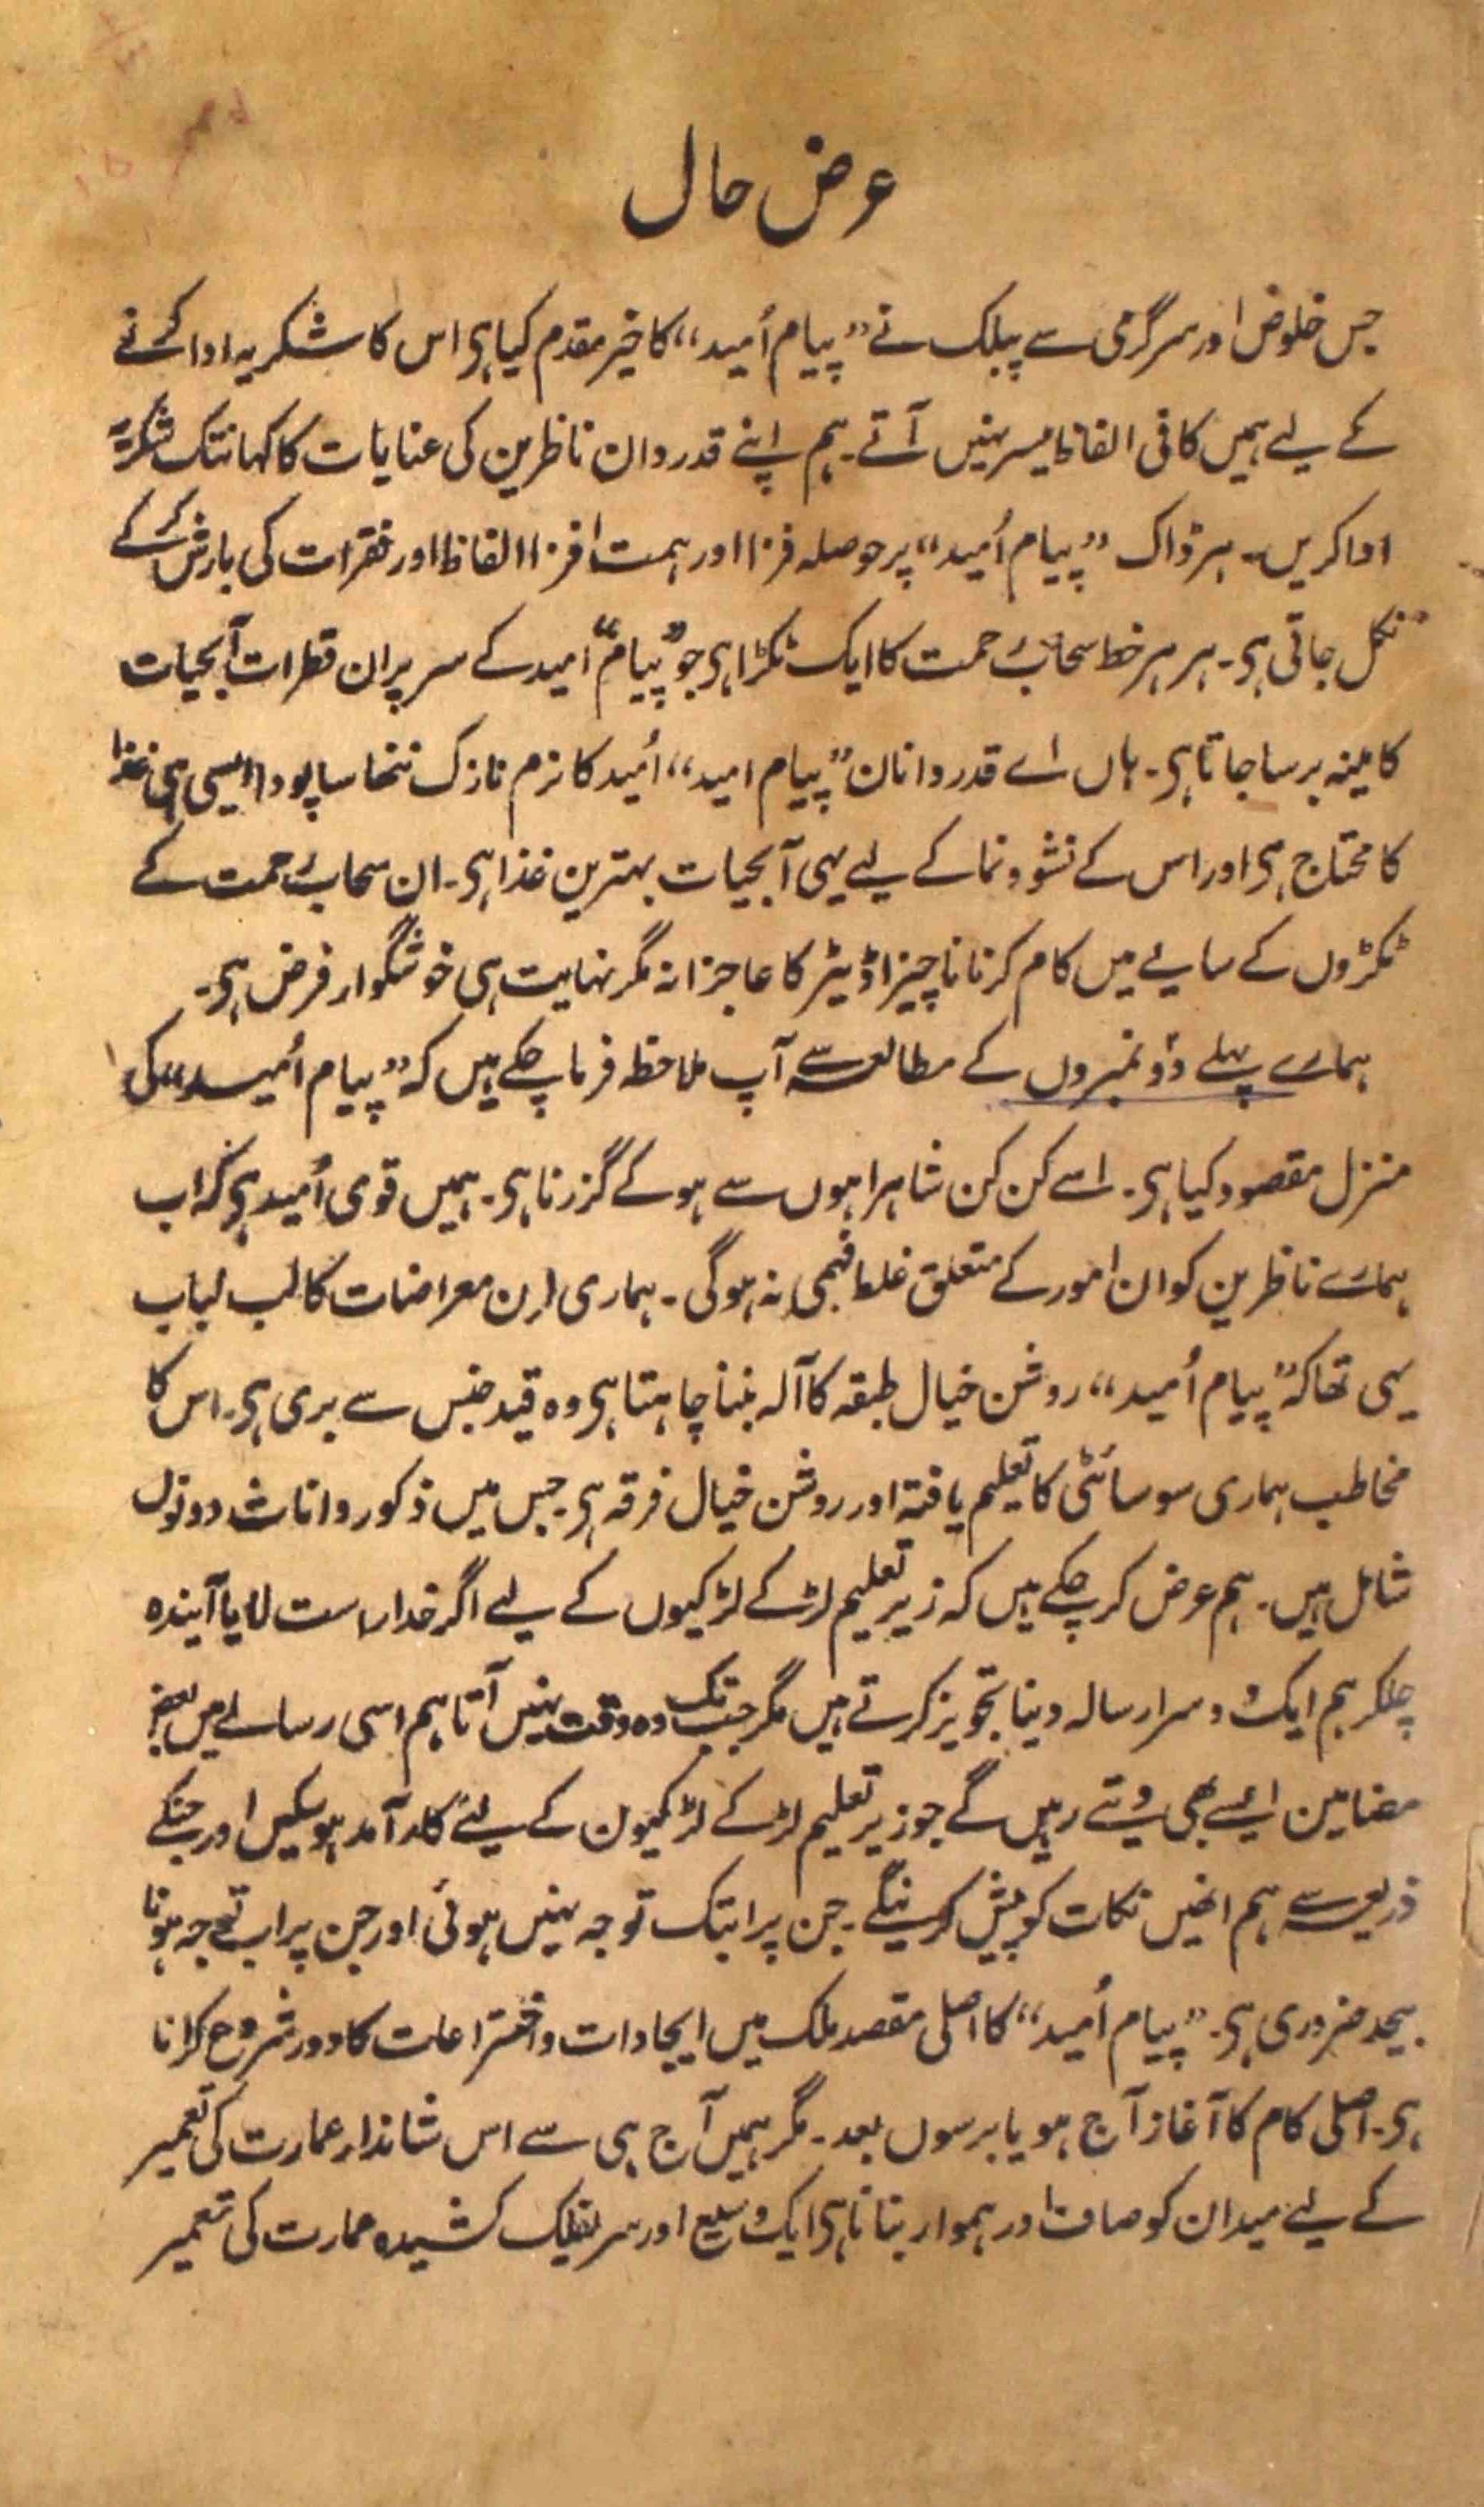 عرض حال
جس خلوص اور سرگرمی سے پبلک نے "پیام اُمید" کا خیر مقدم کیا ہی اس کا شکریہ ادا کرنے
کے لیے ہمیں کافی الفاظ میسر نہیں آتے۔ ہم اپنے قدردان ناظرین کی عنایات کا کہانتک شکریہ
ادا کریں۔ ہر ڈاک "پیام اُمید" پر حوصلہ فزا اور ہمت افزا الفاظ اور فقرات کی بارش کر کے
نکل جاتی ہی۔ ہر ہر خط سحاب رحمت کا ایک ٹکڑا ہی جو "پیام" امید کے سر پر ان قطرات آبحیات
کا مینہ برسا جاتا ہی۔ ہاں اے قدردانان "پیام امید" اُمید کا نرم نازک ننھا سا پودا ایسی ہی غذا
کا محتاج ہی اور اس کے نشو و نما کے لیے یہی آبحیات بہترین غذا ہی۔ ان سحاب رحمت کے
ٹکڑوں کے سایے میں کام کرنا ناچیز اڈیٹر کا عاجزانہ مگر نہایت ہی خوشگوار فرض ہی۔
ہمارے پہلے دو نمبروں کے مطالعہ سے آپ ملاحظہ فرما چکے ہیں کہ "پیام اُمید" کی
منزل مقصود کیا ہی۔ اسے کن کن شاہراہوں سے ہو کے گزرنا ہی۔ ہمیں قوی اُمید ہی کہ اب
ہمارے ناظرین کو ان امور کے متعلق غلط فہمی نہ ہوگی۔ ہماری اِن معراضات کا لب لباب
یہی تھا کہ "پیام اُمید" روشن خیال طبقہ کا آلہ بننا چاہتا ہی وہ قید جنس سے بری ہی۔ اس کا
مخاطب ہماری سوسائٹی کا تعلیم یافتہ اور روشن خیال فرقہ ہی۔ جس میں ذکور و اناث دونوں
شامل ہیں۔ ہم عرض کر چکے ہیں کہ زیر تعلیم لڑکے لڑکیوں کے لیے اگر خدا راست لایا آیندہ
چلکر ہم ایک دوسرا رسالہ دینا تجویز کرتے ہیں مگر جب تک وہ وقت نہیں آتا ہم اسی رسالے میں بعض
مضامین ایسے بھی دیتے رہیں گے جو زیر تعلیم لڑکے لڑکیوں کے لیے کارآمد ہو سکیں اور جنکے
ذریعہ سے ہم انھیں نکات کو پیش کرینگے۔ جن پر ابتک توجہ نہیں ہوئی اور جن پر اب توجہ ہونا
بیحد ضروری ہی۔ "پیام اُمید" کا اصلی مقصد ملک میں ایجادات و اختراعات کا دور شروع کرانا
ہی۔ اصلی کام کا آغاز آج ہو یا برسوں بعد۔ مگر ہمیں آج ہی سے اس شاندار عمارت کی تعمیر
کے لیے میدان کو صاف اور ہموار بنانا ہی ایک وسیع اور سر بفلک کشیدہ عمارت کی تعمیر